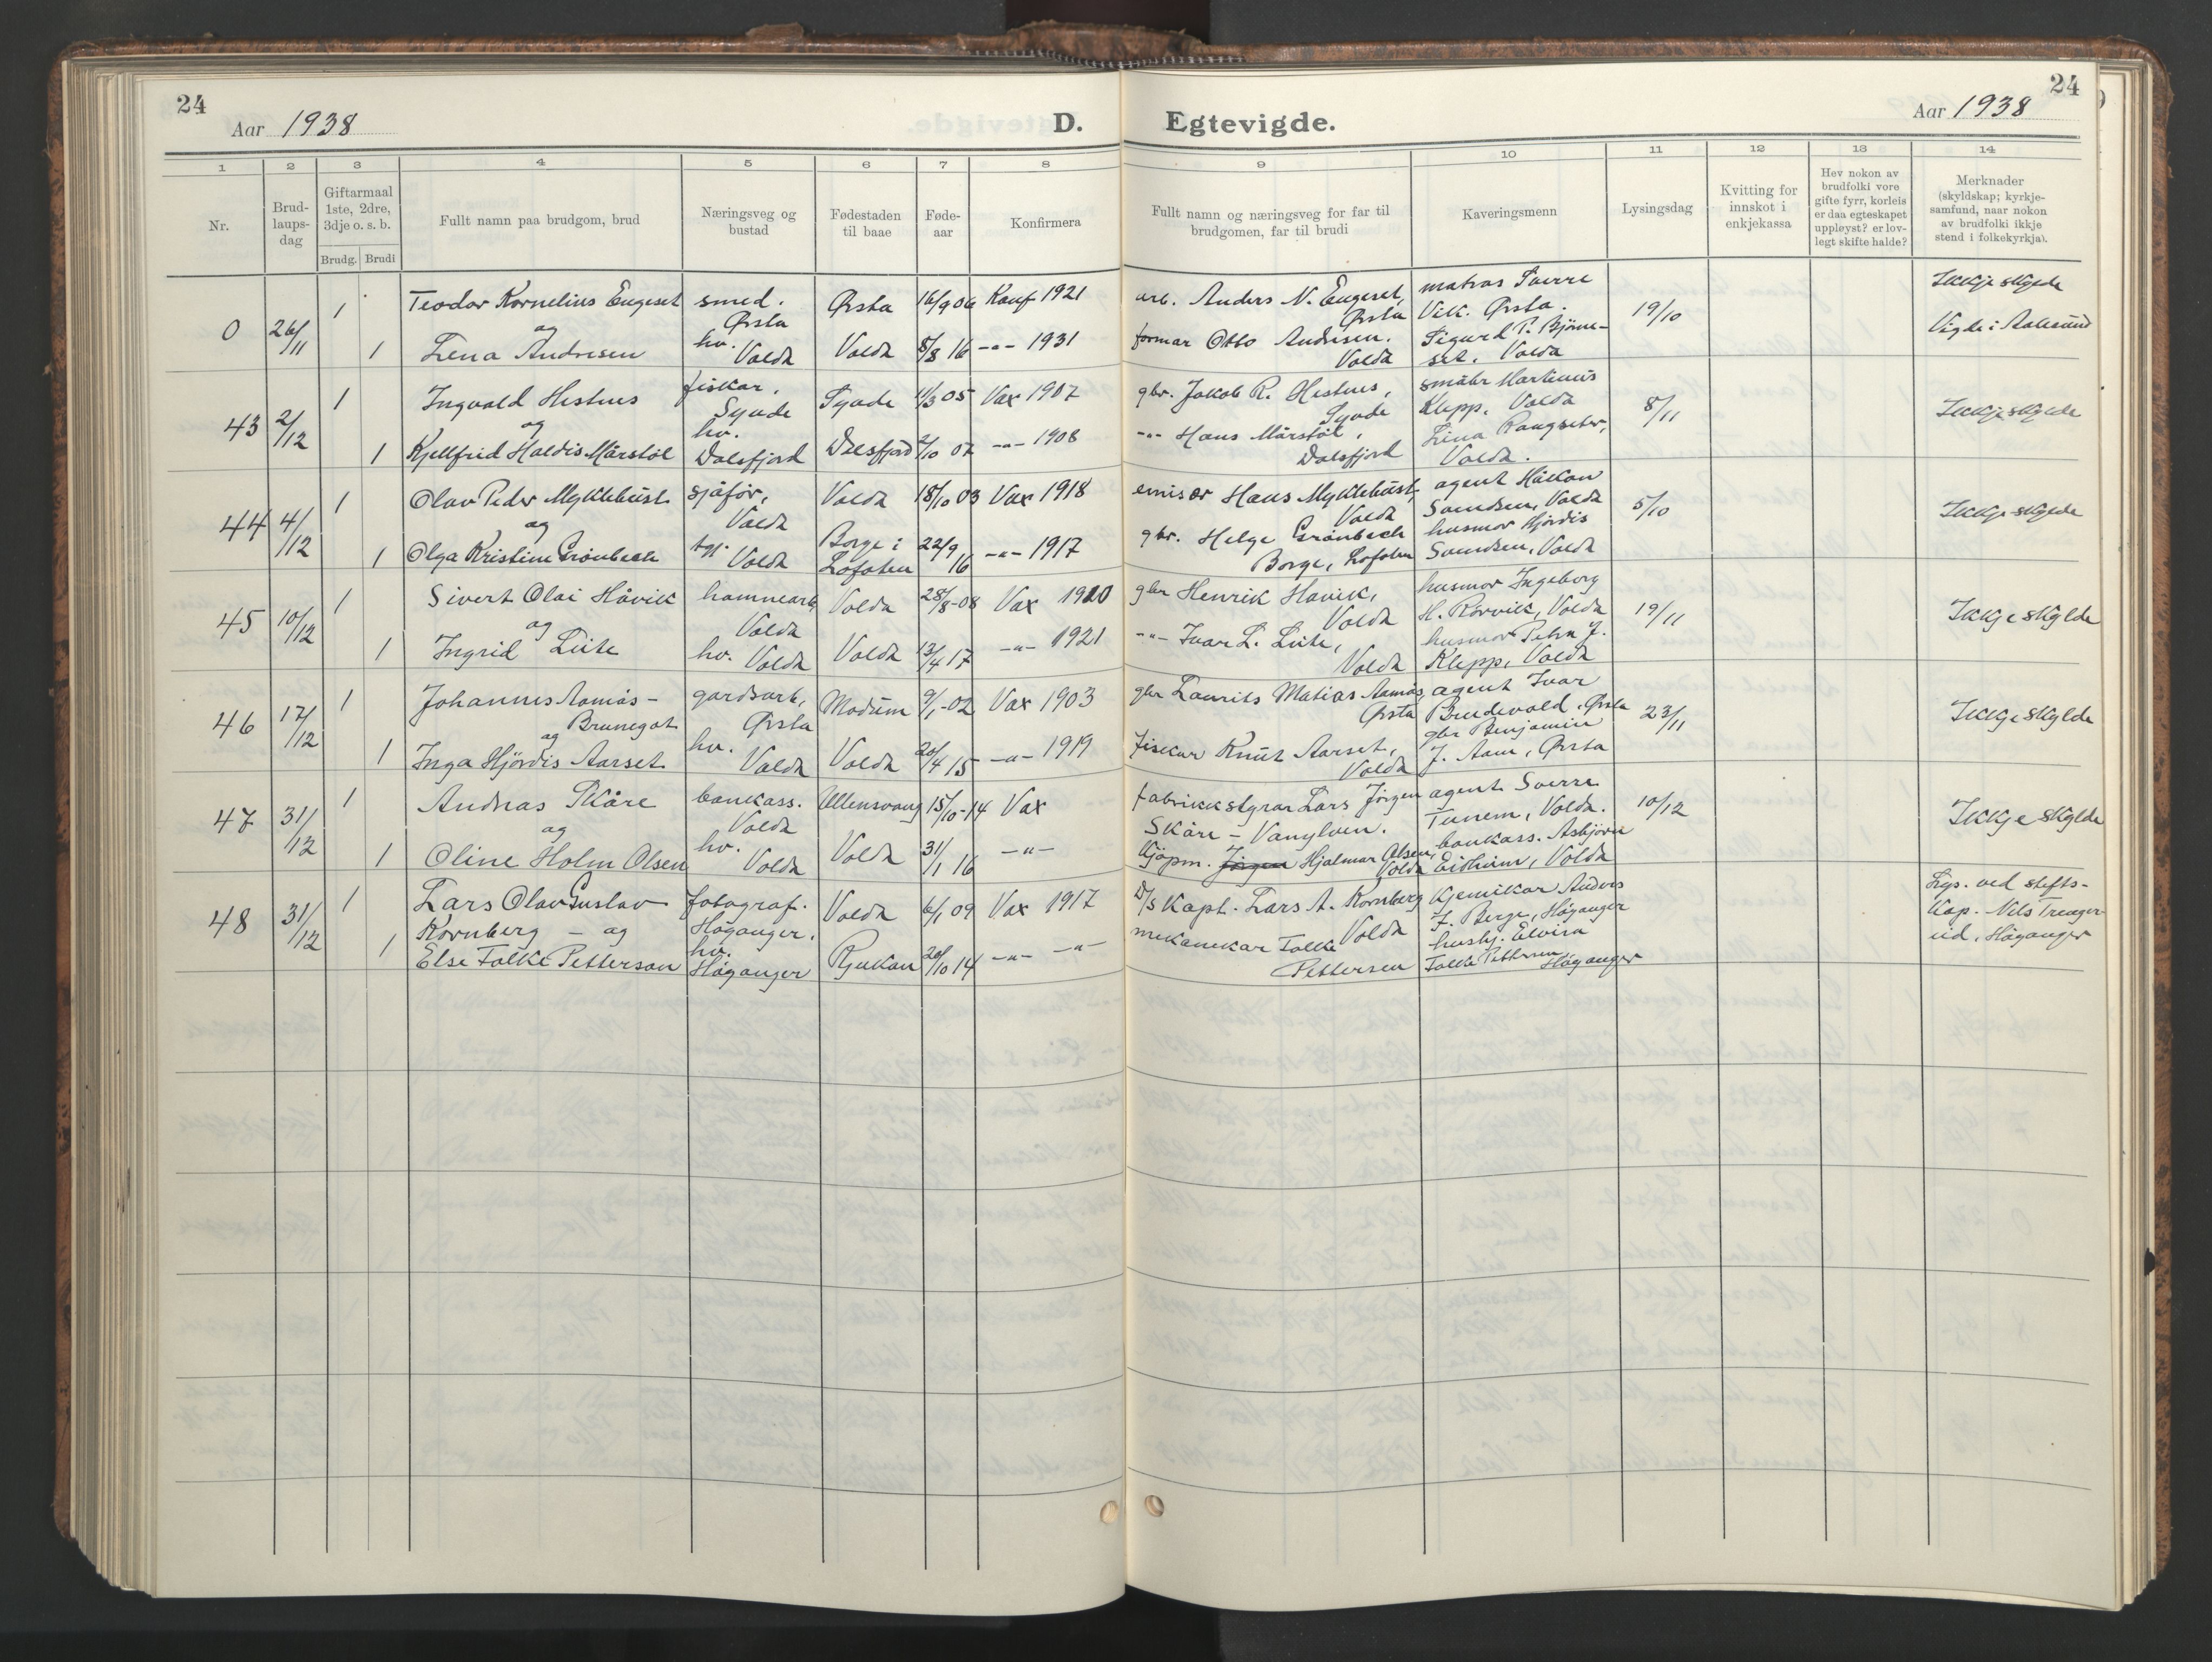 24
Aar 1938
D.
1 2 3 4 5 6 7 8
Nr.
Brud-
laups-
dag
Giftarmaal
1ste, 2dre,
3dje o. s. b.
Brudg. Brudi
Fullt namn paa brudgom, brud
Næringsveg og
bustad
Fødestaden
til baae
Føde-
aar
Konfirmera
0 26/11 1 Teodor Kornelius Engeset smed. Ørsta 16/9 06 Konf 1921
og Ørsta
1 Lena Andresen hv. Volda Volda 8/8 16 -"- 1931
43 2/12 1 Ingvald Hestnes fiskar, Syvde Syvde 4/3 05 Vax 1907
og
1 Kjellfrid Haldis Mårstøl hv. Dalsfjord Dalsfjord 2/10 07 -"- 1908
44 4/12 1 Olav Peder Myklebust sjåfør, Volda Volda 18/10 03 Vax 1918
og
1 Olga Kristine Grönbech Volda Borge i Lofoten 22/9 16 -"- 1917
45 10/12 1 Sivert Olai Håvik hamnearb, Volda Volda 28/8-08 Vax 1920
og
1 Ingrid Liite hv. Volda Volda 13/4 17 -"- 1921
46 17/12 1 Johannes Aamås- gardsarb, Modum 9/1-02 Vax 1903
Brunegot Ørsta
og
1 Inga Hjördis Aarset hv. Volda Volda 20/4 15 -"- 1919
47 31/12 1 Andreas Skåre bankass. Volda Ullensvang 15/10-14 Vax
og
1 Oline Holm Olsen hv. Volda Volda 31/1 16 -"-
48 31/12 1 Lars Olav Gustav fotograf. Volda 6/1 09 Vax 1917
Kornberg - og Höganger.
1 Else Falke Petterson hv. Höganger Rjukan 20/10 14 -"- -"-
24
Egtevigde.
Aar 1938
9 10 11 12 13 14
Fullt namn og næringsveg for far til
brudgomen, far til brudi
Kaveringsmenn
Lysingsdag
Kvitting for
innskot i
enkjekassa
Hev nokon av
brudfolki vore
gifte fyrr, korleis
er daa egteskapet
uppløyst? er lov-
legt skifte halde?
Merknader
(skyldskap; kyrkje-
samfund, naar nokon
av brudfolki ikkje
stend i folkekyrkja).
arb. Anders N. Engeset, Ørsta matros Sverre Vik. Ørsta. 19/10 Ikkje skylde
formar Otto Andresen. Volda Sigurd P. Björne- set. Volda Vigde i Aalesund
gbr. Jakob R. Hestnes, Syvde småbr Martinus Klepp. Volda 8/11 Ikkje skylde
-"- Hans Mårstöl, Dalsfjord Lina Rangseter, Volda.
emisær Hans Myklebust, Volda agent Håkon Svendsen, Volda 5/10 Ikkje skylde
gbr. Helge Grönbech Borge, Lofoten husmor Hjördis Svendsen, Volda
gbr Henrik Havik, Volda husmor Ingeborg H. Rörvik, Volda 19/11 Ikkje skylde
-"- Ivar L. Liite, Volda husmor Petra J. Klepp, Volda
gbr Laurits Matias Aamås, Ørsta agent Ivar Brudevold, Ørsta 23/11 Ikkje skylde
fiskar Knut Aarset, Volda gbr Benjamin J. Aam, Ørsta
fabrikkstyrar Lars Jörgen Skåre - Vanylven. agent Sverre Tunem, Volda. 10/12 Ikkje skylde
Kjöpm. Jörgen Hjalmar Olsen, Volda bankass. Asbjörn Eidheim, Volda
D/S Kapt. Lars A. Kornberg Volda Kjemikar Anders J. Berge, Höganger Lys. ved stifts-
kap. Nils Treager-
eid, Höganger
mekanikar Falke Pettersen husbj. Elvira Falke Pettersen Höganger